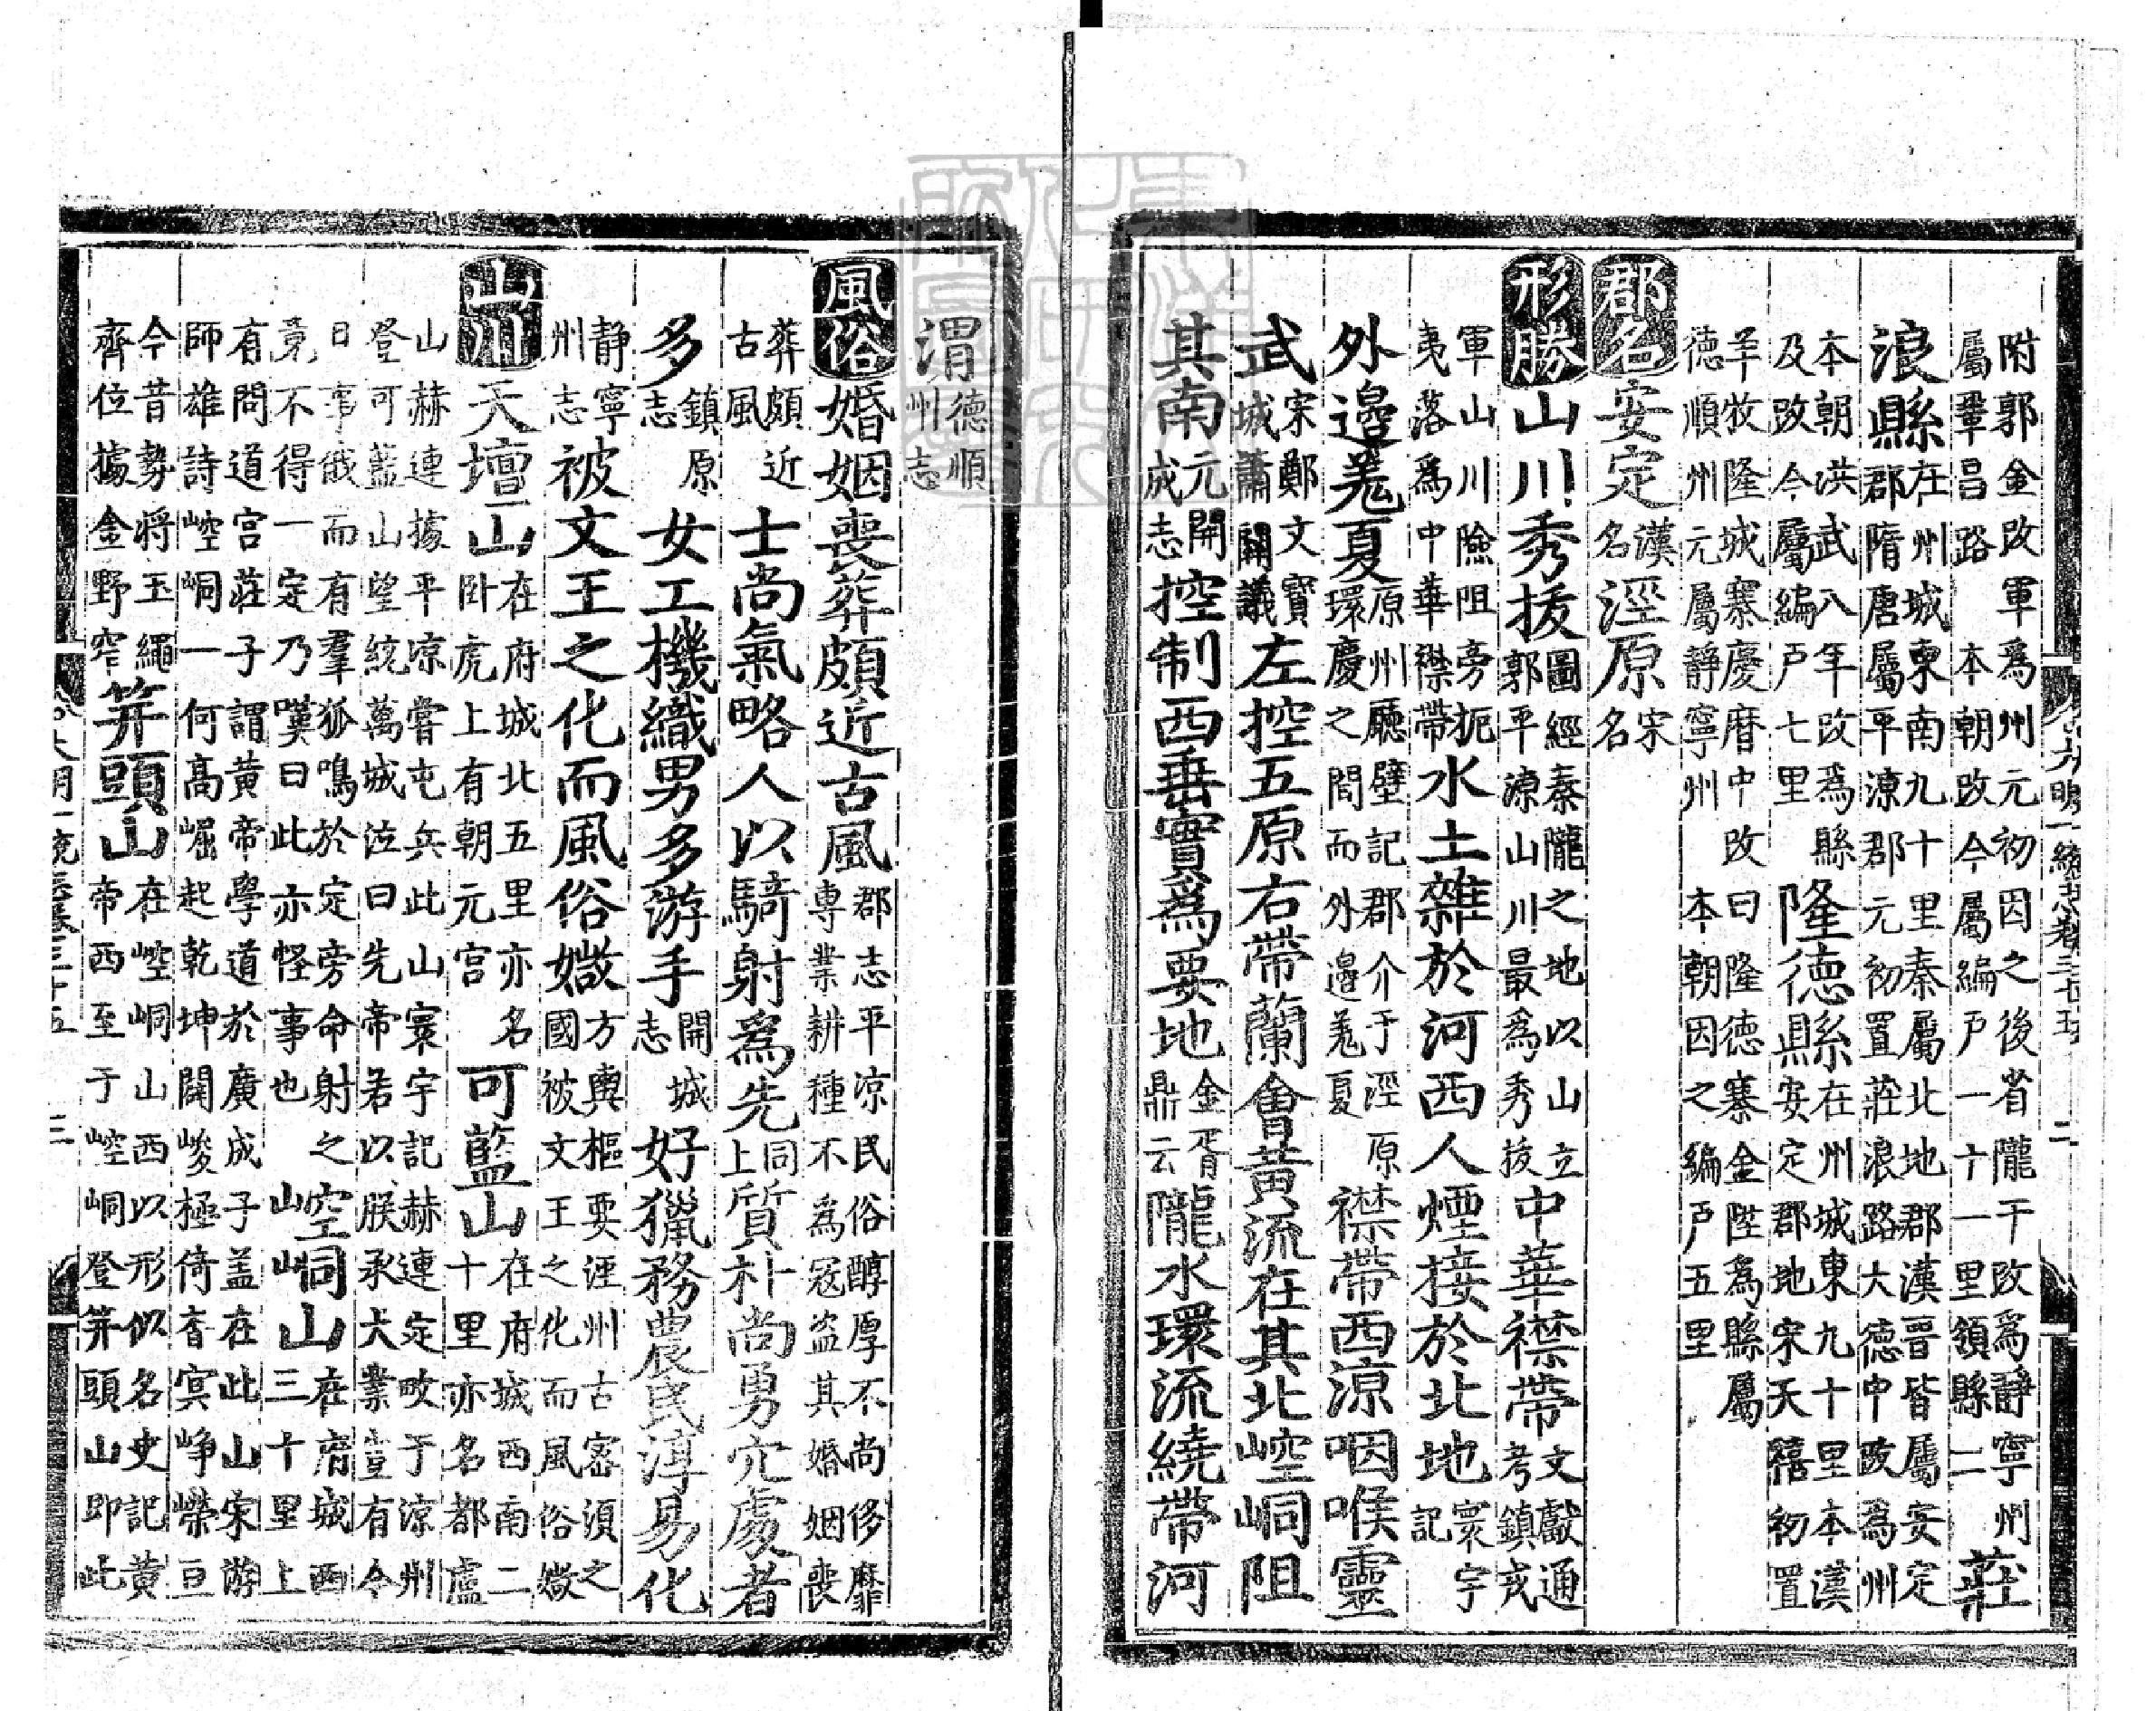 附郭金改軍爲州元初因之後省隴干改爲靜寧州
屬鞏昌路本朝改今屬編戶一十一里領縣二
莊
浪縣
在州城東南九十里秦屬北地郡漢晉皆屬安定
郡隋唐屬平凉郡元初置莊浪路大德中改爲州
本朝洪武八年改爲縣
及改今屬編戶七里
隆德縣
在州城東九十里本漢
安定郡地宋天禧初置
羊牧隆城寨慶曆中改曰隆德寨金陞爲縣屬
德順州元屬靜寧州本朝因之編戶五里
郡名
安定
漢
名
涇原
宋
名
形勝
山川秀拔
圖經秦隴之地以山立
郭平凉山川最爲秀拔
中華襟帶
文獻通
考鎮戎
軍山川險阻旁扼
夷落爲中華襟帶
水土雜於河西人煙接於北地
寰宇
記
外邊羗夏
原州廳壁記郡介于涇原
環慶之間而外邊羗夏
襟帶西凉咽喉靈
武
宋鄭文寶
城蕭關議
左控五原右帶蘭會黃流在其北崆峒阻
其南
元開
成志
控制西垂實爲要地
金胥
鼎云
隴水環流繞帶河
大明一統志卷三十五 二
渭
德順
州志
風俗
婚姻喪葬頗近古風
郡志平凉民俗醇厚不尚侈靡
專業耕種不爲冦盗其婚姻喪
葬頗近
古風
士尚氣略人以騎射爲先
同
上
質朴尚勇穴處者
多
鎮原
志
女工機織男多游手
開城
志
好獵務農民淳易化
靜寧
州志
被文王之化而風俗媺
方輿樞要涇州古密須之
國被文王之化而風俗媺
山川
天壇山
在府城北五里亦名
卧虎上有朝元宫
可藍山
在府城西南二
十里亦名都盧
山赫連據平凉嘗屯兵此山寰宇記赫連定畋于凉州
登可藍山望統萬城泣曰先帝若以朕承大業豈有今
日事俄而有羣狐鳴於定旁命射之
竟不得一定乃嘆曰此亦怪事也
崆峒山
在府城西
三十里上
有問道宫莊子謂黃帝學道於廣成子盖在此山宋游
師雄詩崆峒一何高崛起乾坤闢峻極倚杳冥峥嶸亘
今昔勢將玉繩
齊位據金野窄
笄頭山
在崆峒山西以形似名史記黃
帝西至于崆峒登笄頭山即此
大明一統志卷三十五 三